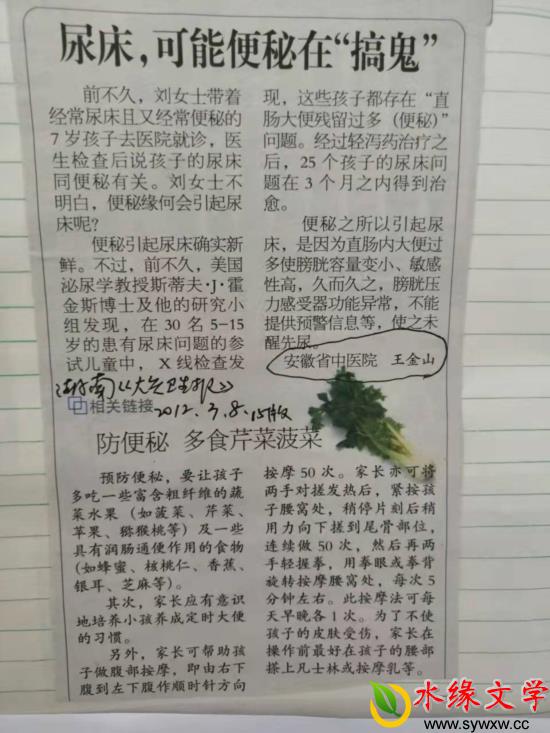 尿床，可能便秘在“搞鬼”
前不久，刘女士带着
经常尿床且又经常便秘的
7岁孩子去医院就诊，医
生检查后说孩子的尿床
同便秘有关。刘女士不
明白，便秘缘何会引起尿
床呢？
便秘引起尿床确实新
鲜。不过，前不久，美国
泌尿学教授斯蒂夫·J·霍
金斯博士及他的研究小
组发现，在30名5-15
岁的患有尿床问题的参
试儿童中，X线检查发
现，这些孩子都存在“直
肠大便残留过多（便秘）”
问题。经过轻泻药治疗之
后，25个孩子的尿床问
题在3个月之内得到治
愈。
便秘之所以引起尿
床，是因为直肠内大便过
多使膀胱容量变小、敏感
性高，久而久之，膀胱压
力感受器功能异常，不能
提供预警信息等，使之未
醒先尿。
安徽省中医院 王金山
湖南《大众卫生报》
2012.3.8.15版
相关链接
防便秘 多食芹菜菠菜
预防便秘，要让孩子
多吃一些富含粗纤维的蔬
菜水果（如菠菜、芹菜、
苹果、猕猴桃等）及一些
具有润肠通便作用的食物
(如蜂蜜、核桃仁、香蕉、
银耳、芝麻等)。
其次，家长应有意识
地培养小孩养成定时大便
的习惯。
另外，家长可帮助孩
子做腹部按摩，即由右下
腹到左下腹作顺时针方向
按摩50次。家长亦可将
两手对搓发热后，紧按孩
子腰窝处，稍停片刻后稍
用力向下搓到尾骨部位，
连续做50次，然后再两
手轻握拳，用拳眼或拳背
旋转按摩腰窝处，每次5
分钟左右。此按摩法可每
天早晚各1次。为了不使
孩子的皮肤受伤，家长在
操作前最好在孩子的腰部
搽上凡士林或按摩乳等。
水缘文学
www.sywxw.cc